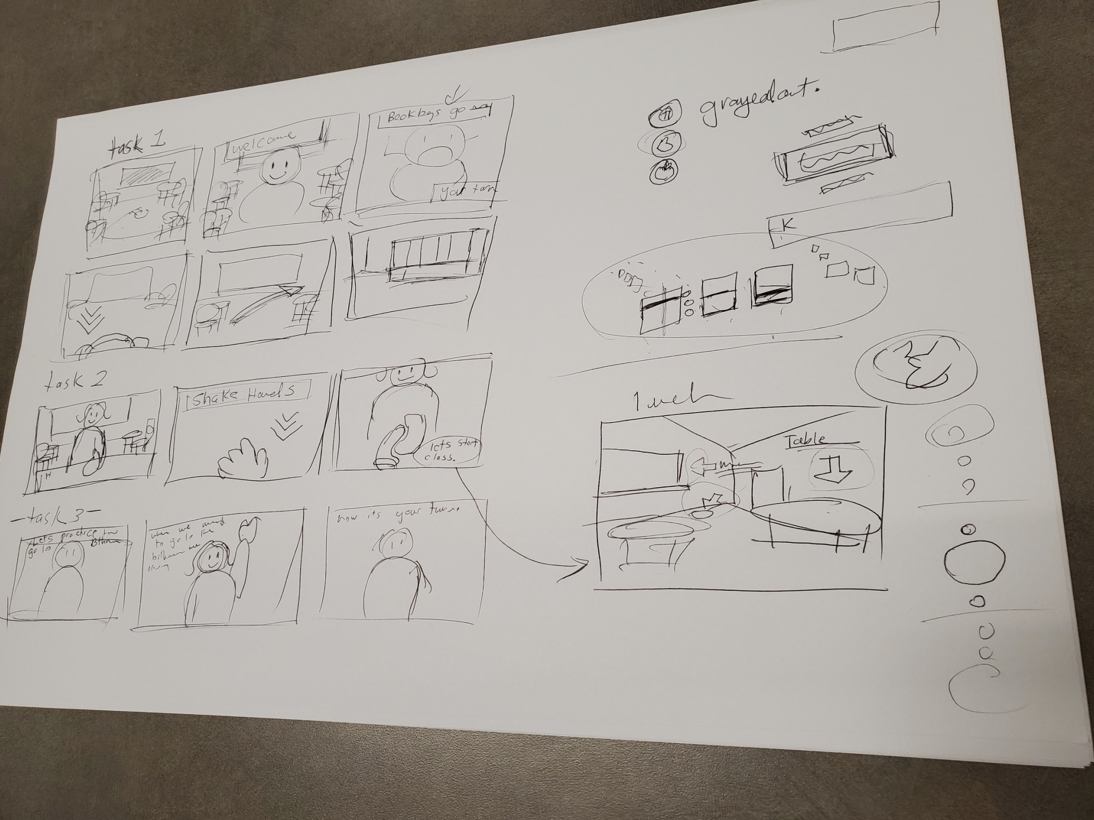 task 1
welcome
Bookbags go
your turn
task 2
Shake Hands
lets start
class.
task 3
Lets practice
go to
when we want
to go to the
now it's your turn.
grayed out.
K
Table